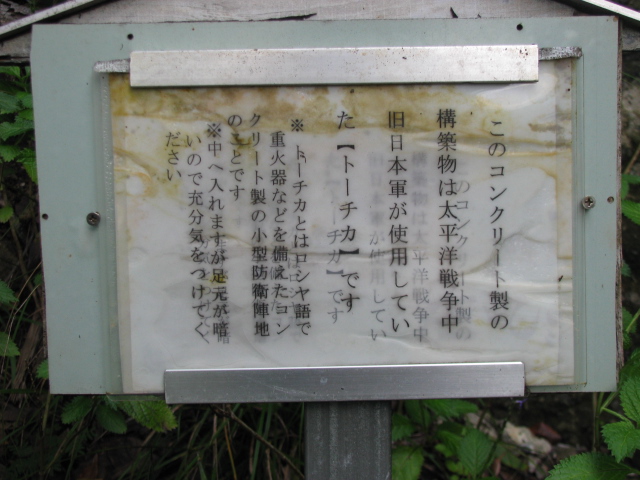 このコンクリート製の
構築物は太平洋戦争中
旧日本軍が使用してい
た【トーチカ】です
※ トーチカとはロシヤ語で
重火器などを備えたコン
クリート製の小型防衛陣地
のことです
※中へ入れますが足元が暗
いので充分気をつけてく
ださい